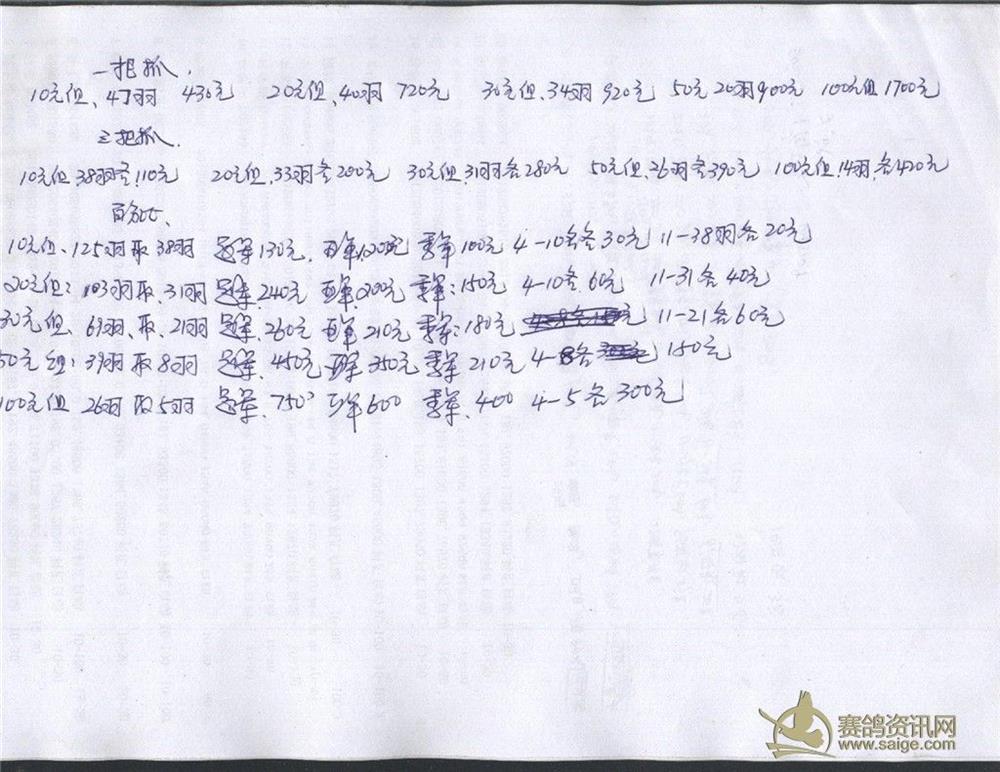 一把抓.
10元组、47羽 430元 20元组、40羽 720元 30元组、34羽 920元 50元 20羽 900元 100元组 1700元
三把抓.
10元组、38羽各110元 20元组、33羽各200元 30元组、31羽各280元 50元组、26羽各390元 100元组、14羽、各420元
百分比、
10元组、125羽取38羽 冠军130元、亚军120元 季军100元 4-10名各30元 11-38羽各20元
20元组: 103羽取、31羽 冠军、240元 亚军200元 季军:150元 4-10各60元 11-31各40元
30元组、69羽、取、21羽 冠军、260元 亚军210元 季军:180元 11-21各60元
50元组: 39羽取8羽 冠军、450元 亚军350元 季军210元 4-8各 150元
100元组 26羽取5羽 冠军、750 亚军600 季军、400 4-5各300元
赛鸽资讯网
www.saige.com